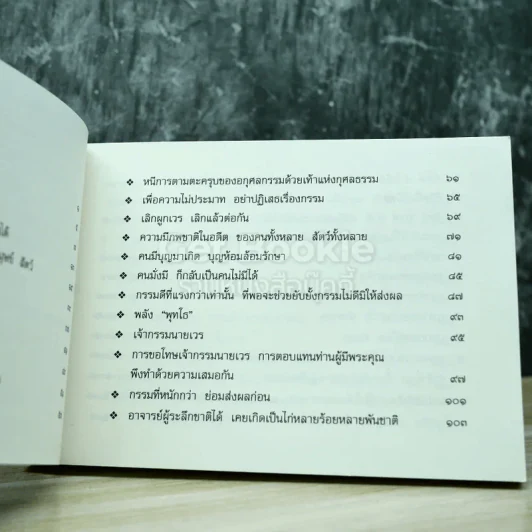 ❖ หนีการตามตะครุบของอกุศลกรรมด้วยเท้าแห่งกุศลธรรม ๖๑
❖ เพื่อความไม่ประมาท อย่าปฏิเสธเรื่องกรรม ๖๕
❖ เลิกผูกเวร เลิกแล้วต่อกัน ๖๙
❖ ความมีภพชาติในอดีต ของคนทั้งหลาย สัตว์ทั้งหลาย ๗๑
❖ คนมีบุญมาเกิด บุญห้อมล้อมรักษา ๘๑
❖ คนมั่งมี ก็กลับเป็นคนไม่มีได้ ๘๕
❖ กรรมดีที่แรงกว่าเท่านั้น ที่พอจะช่วยยับยั้งกรรมไม่ดีมิให้ส่งผล ๘๗
❖ พลัง “พุทโธ” ๙๓
❖ เจ้ากรรมนายเวร ๙๕
❖ การขอโทษเจ้ากรรมนายเวร การตอบแทนท่านผู้มีพระคุณ
พึงทำด้วยความเสมอกัน ๙๗
❖ กรรมที่หนักกว่า ย่อมส่งผลก่อน ๑๐๑
❖ อาจารย์ผู้ระลึกชาติได้ เคยเกิดเป็นไก่หลายร้อยหลายพันชาติ ๑๐๓